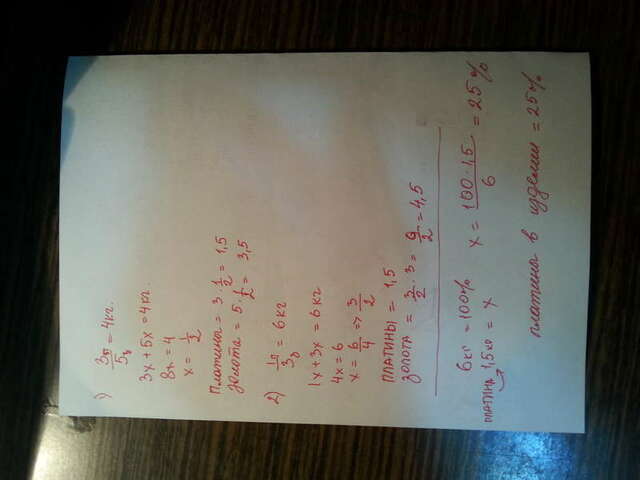 1) 3п/5з = 4кг.
3x + 5x = 4кг.
8x = 4
x = 1/2
Платины = 3 · 1/2 = 1,5
Золота = 5 · 1/2 = 3,5
2) 1п/3з = 6кг
1x + 3x = 6кг
4x = 6
x = 6/4 => 3/2
ПЛАТИНЫ = 1,5
ЗОЛОТА = 3/2 · 3 = 9/2 = 4,5
6кг = 100%
ПЛАТИНА 1,5кг = x
x = 100 · 1,5/6 = 25%
платины в изделии = 25%